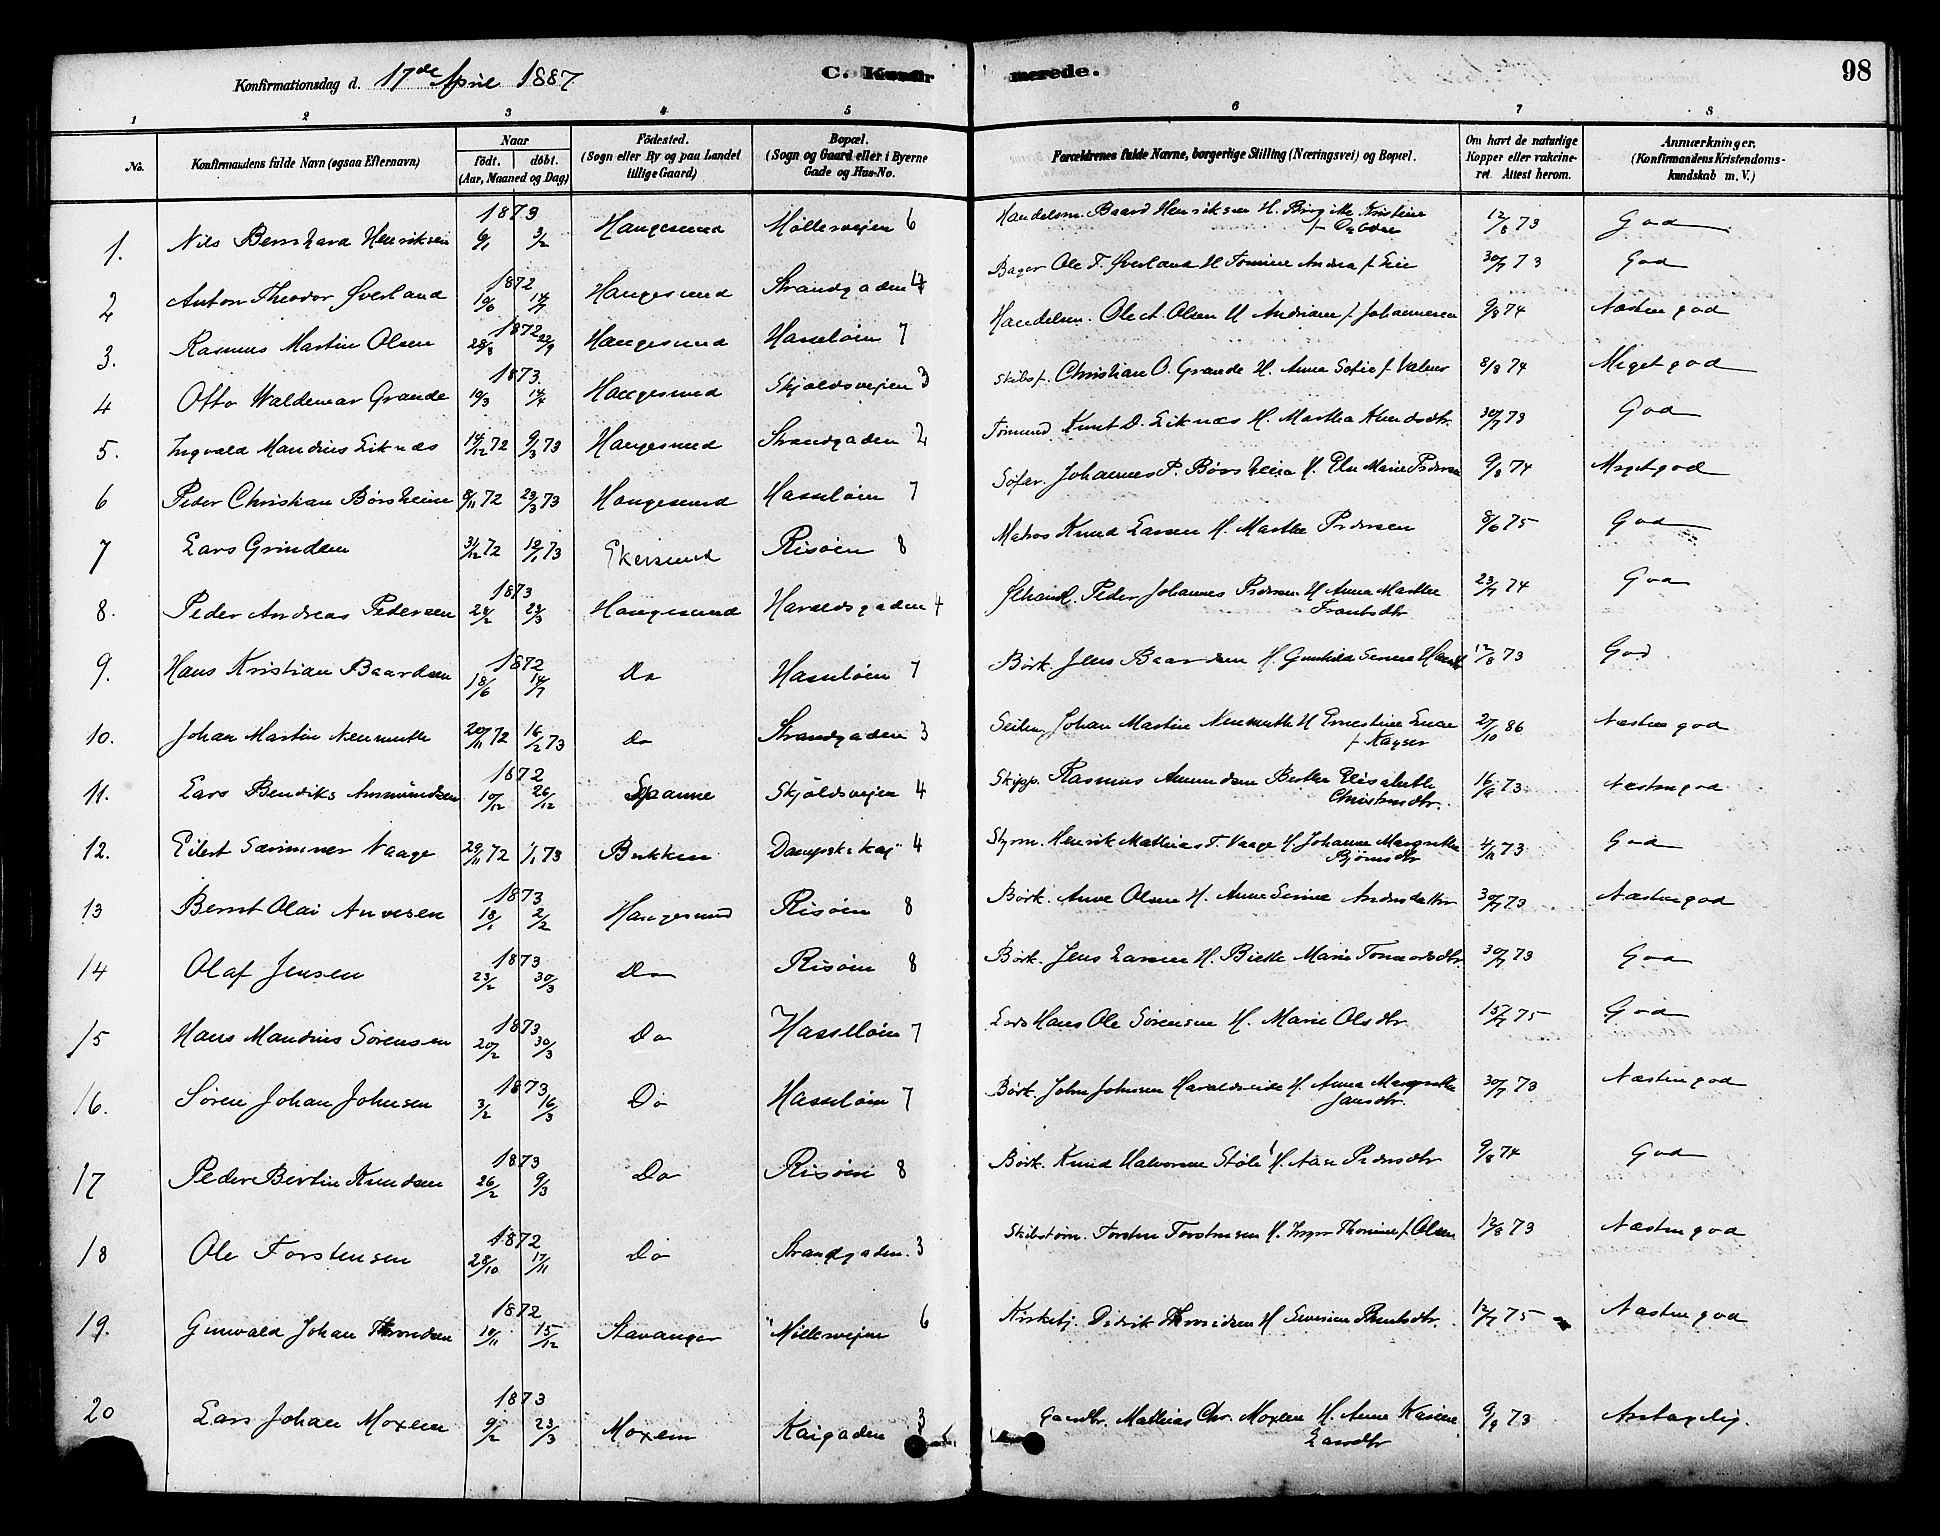 Konfirmationsdag d. 17de April 1887
C. Konfir merede. 98
1 2 3 4 5 6 7 8
No. Konfirmandens fulde Navn (ogsaa Efternavn) Naar født. døbt. (Aar, Maaned og Dag) Födested. (Sogn eller By og paa Landet tillige Gaard) Bopæl. (Sogn og Gaard eller i Byerne Gade og Hus-No. Forældrenes fulde Navne, borgerlige Stilling (Næringsvei) og Bopæl. Om havt de naturlige Kopper eller vakcineret. Attest herom. Anmærkninger. (Konfirmandens Kristendomskundskab m. V.)
1. Nils Bernhard Henriksen 1873 6/1 3/2 Haugesund Møllervejen 6 Handelsm. Baard Henriksen H. Birgitte Kristine 12/8 73 God
2 Anton Theodor Øverland 1872 10/6 14/7 Haugesund Strandgaden 4 Bager Ole T. Øverland H Tomine Andrea f. Lie 30/7 73 God
3. Rasmus Martin Olsen 1872 28/8 22/9 Haugesund Hasseløen 7 Handelsm. Ole A. Olsen H Andriane f. Johannesen 9/8 74 Næsten god
4 Otto Waldemar Grande 1873. 19/3 14/4 Haugesund Skjoldsvejen 3 Skibsf. Christian O. Grande H. Anna Sofie f. Valner 8/8 74 Meget god
5. Ingvald Mandius Eiknæs 14/12 72 9/3 73 Haugesund Strandgaden 2 Tømmd. Knut D. Eiknæs H. Martha Knudsdtr. 30/7 73 God
6 Peder Christian Børsheim 9/11 72 23/3 73 Haugesund Hasseløen 7 Søfar. Johannes P. Børsheim H. Elen Marie Pedersen 9/8 74 Meget god
7 Lars Grindsen 31/12 72 19/1 73 Ekersund Risøen 8 Matros Knud Larsen H. Marthe Pedersen 8/6 75 God
8. Peder Andreas Pedersen 1873 24/2 23/3 Haugesund Haraldsgaden 4 Ølhandl. Peder Johannes Pedersen H Anna Marthe Frantsdtr 23/7 74 God
9. Hans Kristian Baardsen 1872 18/6 14/7 Do Hasseløen 7 Bødk. Jens Baardsen H. Gunhilda Serine 12/8 73 God
10. Johan Martin Neumuth 20/11 72 16/2 73 Do Strandgaden 3 Johan Martin Neumuth H Ernestine f. Kayser 27/10 86 Næsten god
11. Lars Bendiks Amundsen 1872 10/12 26/12 Spanne Skjoldsvejen 4 Skipp. Rasmus Amundsen Berthe Elisabeth Christensdtr. 16/9 73 Næsten god
12. Eilert Særimner Vaage 29/11 72 1/1 73 Bukken Dampsk. kaj 4 Styrm. Henrik Mathias T. Vaage H. Johanne Margrethe Bjørnsdtr 4/11 73 God
13 Bernt Olai Anvesen 1873 18/1 2/2 Haugesund Risøen 8 Bødk. Anve Olsen H. Anne Serine Andersdatter 30/7 73 Næsten god
14 Olaf Jensen 1873 23/2 30/3 Do Risøen 8 Bødk. Jens Larsen H. Birthe Marie 30/7 73 God
15 Hans Mandius Sørensen 1873 20/2 30/3 Do Hasseløen 7 Lods Hans Ole Sørensen H. Marie Olsdtr 15/7 75 God
16. Søren Johan Johnsen 1873 3/2 16/3 Do Hasseløen 7 Bødk. John Johnsen Haraldseide H. Anna Margrethe Jansdtr. 30/7 73 Næsten god
17 Peder Bertin Knudsen 1873 26/2 9/3 Do Risøen 8 Bødk. Knud Halvorsen Støle H. Aase Pedersdtr 9/8 74 God
18 Ole Torstensen 1872 28/10 17/11 Do Strandgaden 3 Skibstøm. Torsten Torstensen H. Inger Thomine f. Olsen 12/8 73 Næsten god
19. Gunvald Johan Throndsen 1872 10/11 15/12 Stavanger Møllervejen 6 Kirketj. Didrik Throndsen H Severine Berntsdtr. 12/7 75 Næsten god
20 Lars Johan Moxem 1873 9/2 23/3 Moxem Kaigaden 3 Gaardbr. Mathias Chr. Moxem H. Anne Karine Larsdtr 9/9 73 Antagelig.